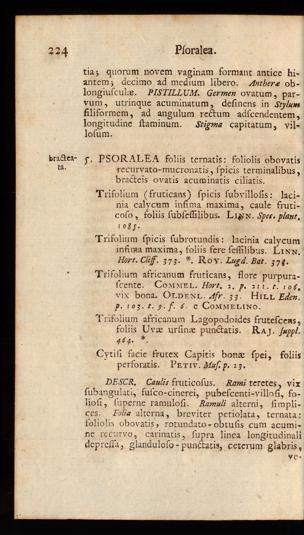 224 Psoralea.
tia; quorum novem vaginam formant antice hi-
antem; decimo ad medium libero. Antheræ ob-
longiusculæ. PISTILLUM. Germen ovatum, par-
vum, utrinque acuminatum, desinens in Stylum
filiformem, ad angulum rectum adscendentem,
longitudine staminum. Stigma capitatum, vil-
losum.
bractea-
ta.
5. PSORALEA foliis ternatis: foliolis obovatis
recurvato-mucronatis, spicis terminalibus,
bracteis ovatis acuminatis ciliatis.
Trifolium (fruticans) spicis subvillosis: laci-
nia calycum infima maxima, caule fruti-
coso, foliis subsessilibus. LINN. Spec. plant.
1085.
Trifolium spicis subrotundis: lacinia calycum
infima maxima, foliis fere sessilibus. LINN.
Hort. Cliff. 373. *. ROY. Lugd. Bat. 378.
Trifolium africanum fruticans, flore purpura-
scente. COMMEL. Hort. 2. p. 211. t. 106.
vix bona. OLDENL. Afr. 33. HILL Eden.
p. 103. t. 9. f. 6. e COMMELINO.
Trifolium africanum Lagopodoides frutescens,
foliis Uvæ ursinæ punctatis. RAJ. Suppl.
464. *.
Cytisi facie frutex Capitis bonæ spei, foliis
perforatis. PETIV. Mus. p. 23.
DESCR. Caulis fruticosus. Rami teretes, vix
subangulati, fusco-cinerei, pubescenti-villosi, fo-
liosi, superne ramulosi. Ramuli alterni, simpli-
ces. Folia alterna, breviter periolata, ternata:
foliolis obovatis, rotundato-obtusis cum acumi-
ne recurvo, carinatis, supra linea longitudinali
depressa, glanduloso-punctatis, ceterum glabris,
ve-